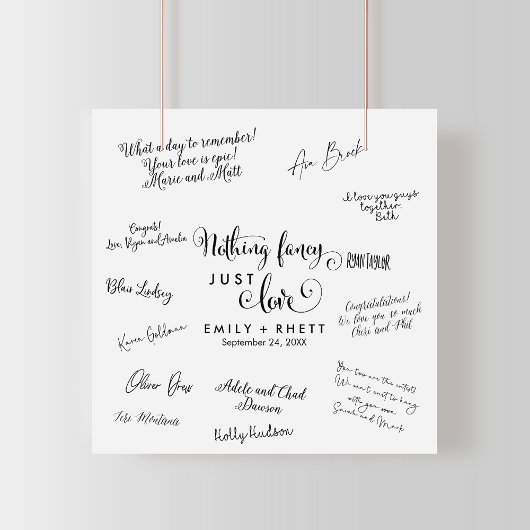 What a day to remember!
Your love is epic!
Marie and Matt
Ava Brock
I love you guys
together.
Beth
Congrats!
Love, Vegan and Amelia
Nothing fancy
JUST
love
RYAN TAYLOR
Blair Lindsey
EMILY + RHETT
September 24, 20XX
Karen Goldman
Congratulations!
We love you so much
Cheri and Phil
Oliver Drew
Adele and Chad
Dawson
You two are the cutest!
We can't wait to hang
with you soon.
Sarah and Mark
Teri Montana
Holly Hudson